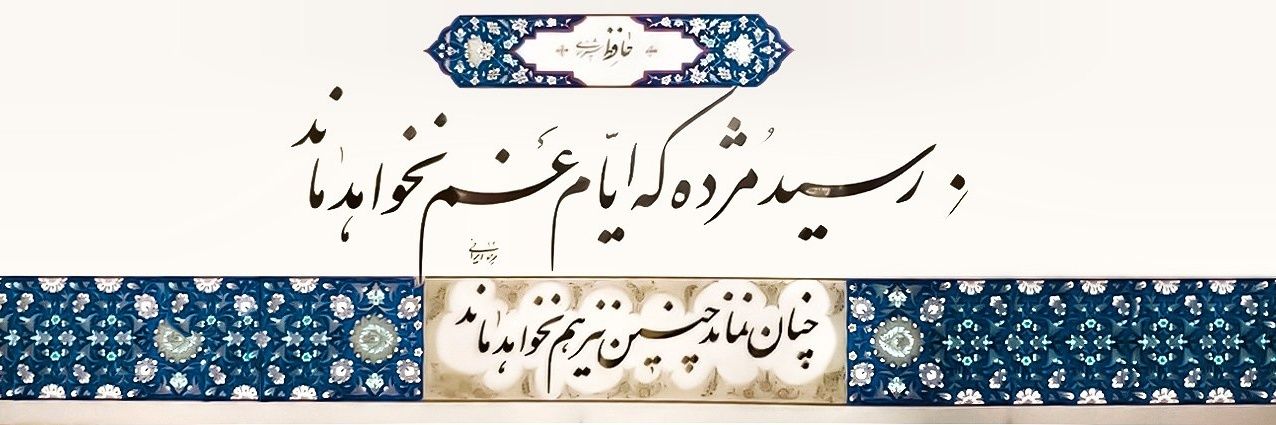 حافظ شیرازی
رسید مُژده که ایّام غَم نخواهد ماند
چنان نماند چنین نیز هم نخواهد ماند